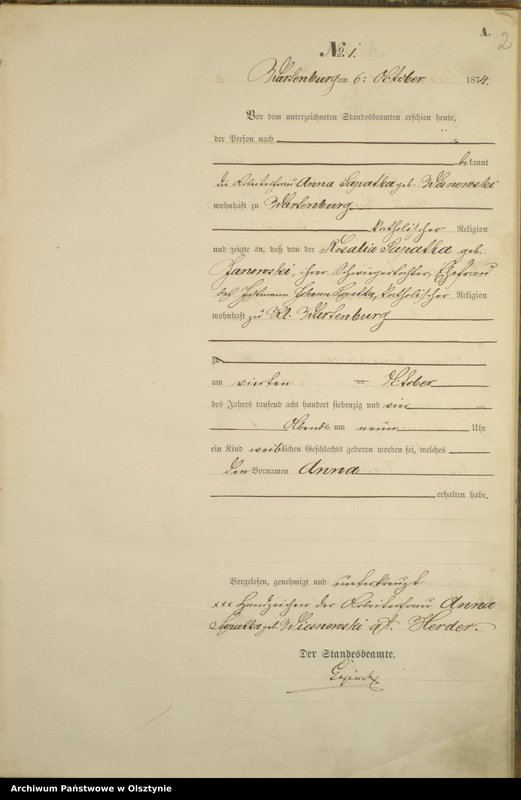 A.
2
No. 1.
Wartenburg am 6: October 1874.
Vor dem unterzeichneten Standesbeamten erschien heute,
der Person nach
bekannt
die Arbeiterfrau Anna Sapatka geb.
wohnhaft zu Wartenburg
katholischer Religion
und zeigte an, daß von der Rosalia Sapatka geb.
Janowski, ihrer Schwiegertochter, Ehefrau
des Johann katholischer Religion
wohnhaft zu Kl. Wartenburg
zu
am vierten ten October
des Jahres tausend acht hundert siebenzig und vier
Abends um neun Uhr
ein Kind weiblichen Geschlechts geboren worden sei, welches
den Vornamen Anna
erhalten habe.
Vorgelesen, genehmigt und unterkreuzt
xxx Handzeichen der Arbeiterfrau Anna
Sapatka geb. Herder.
Der Standesbeamte.
Archiwum Państwowe w Olsztynie